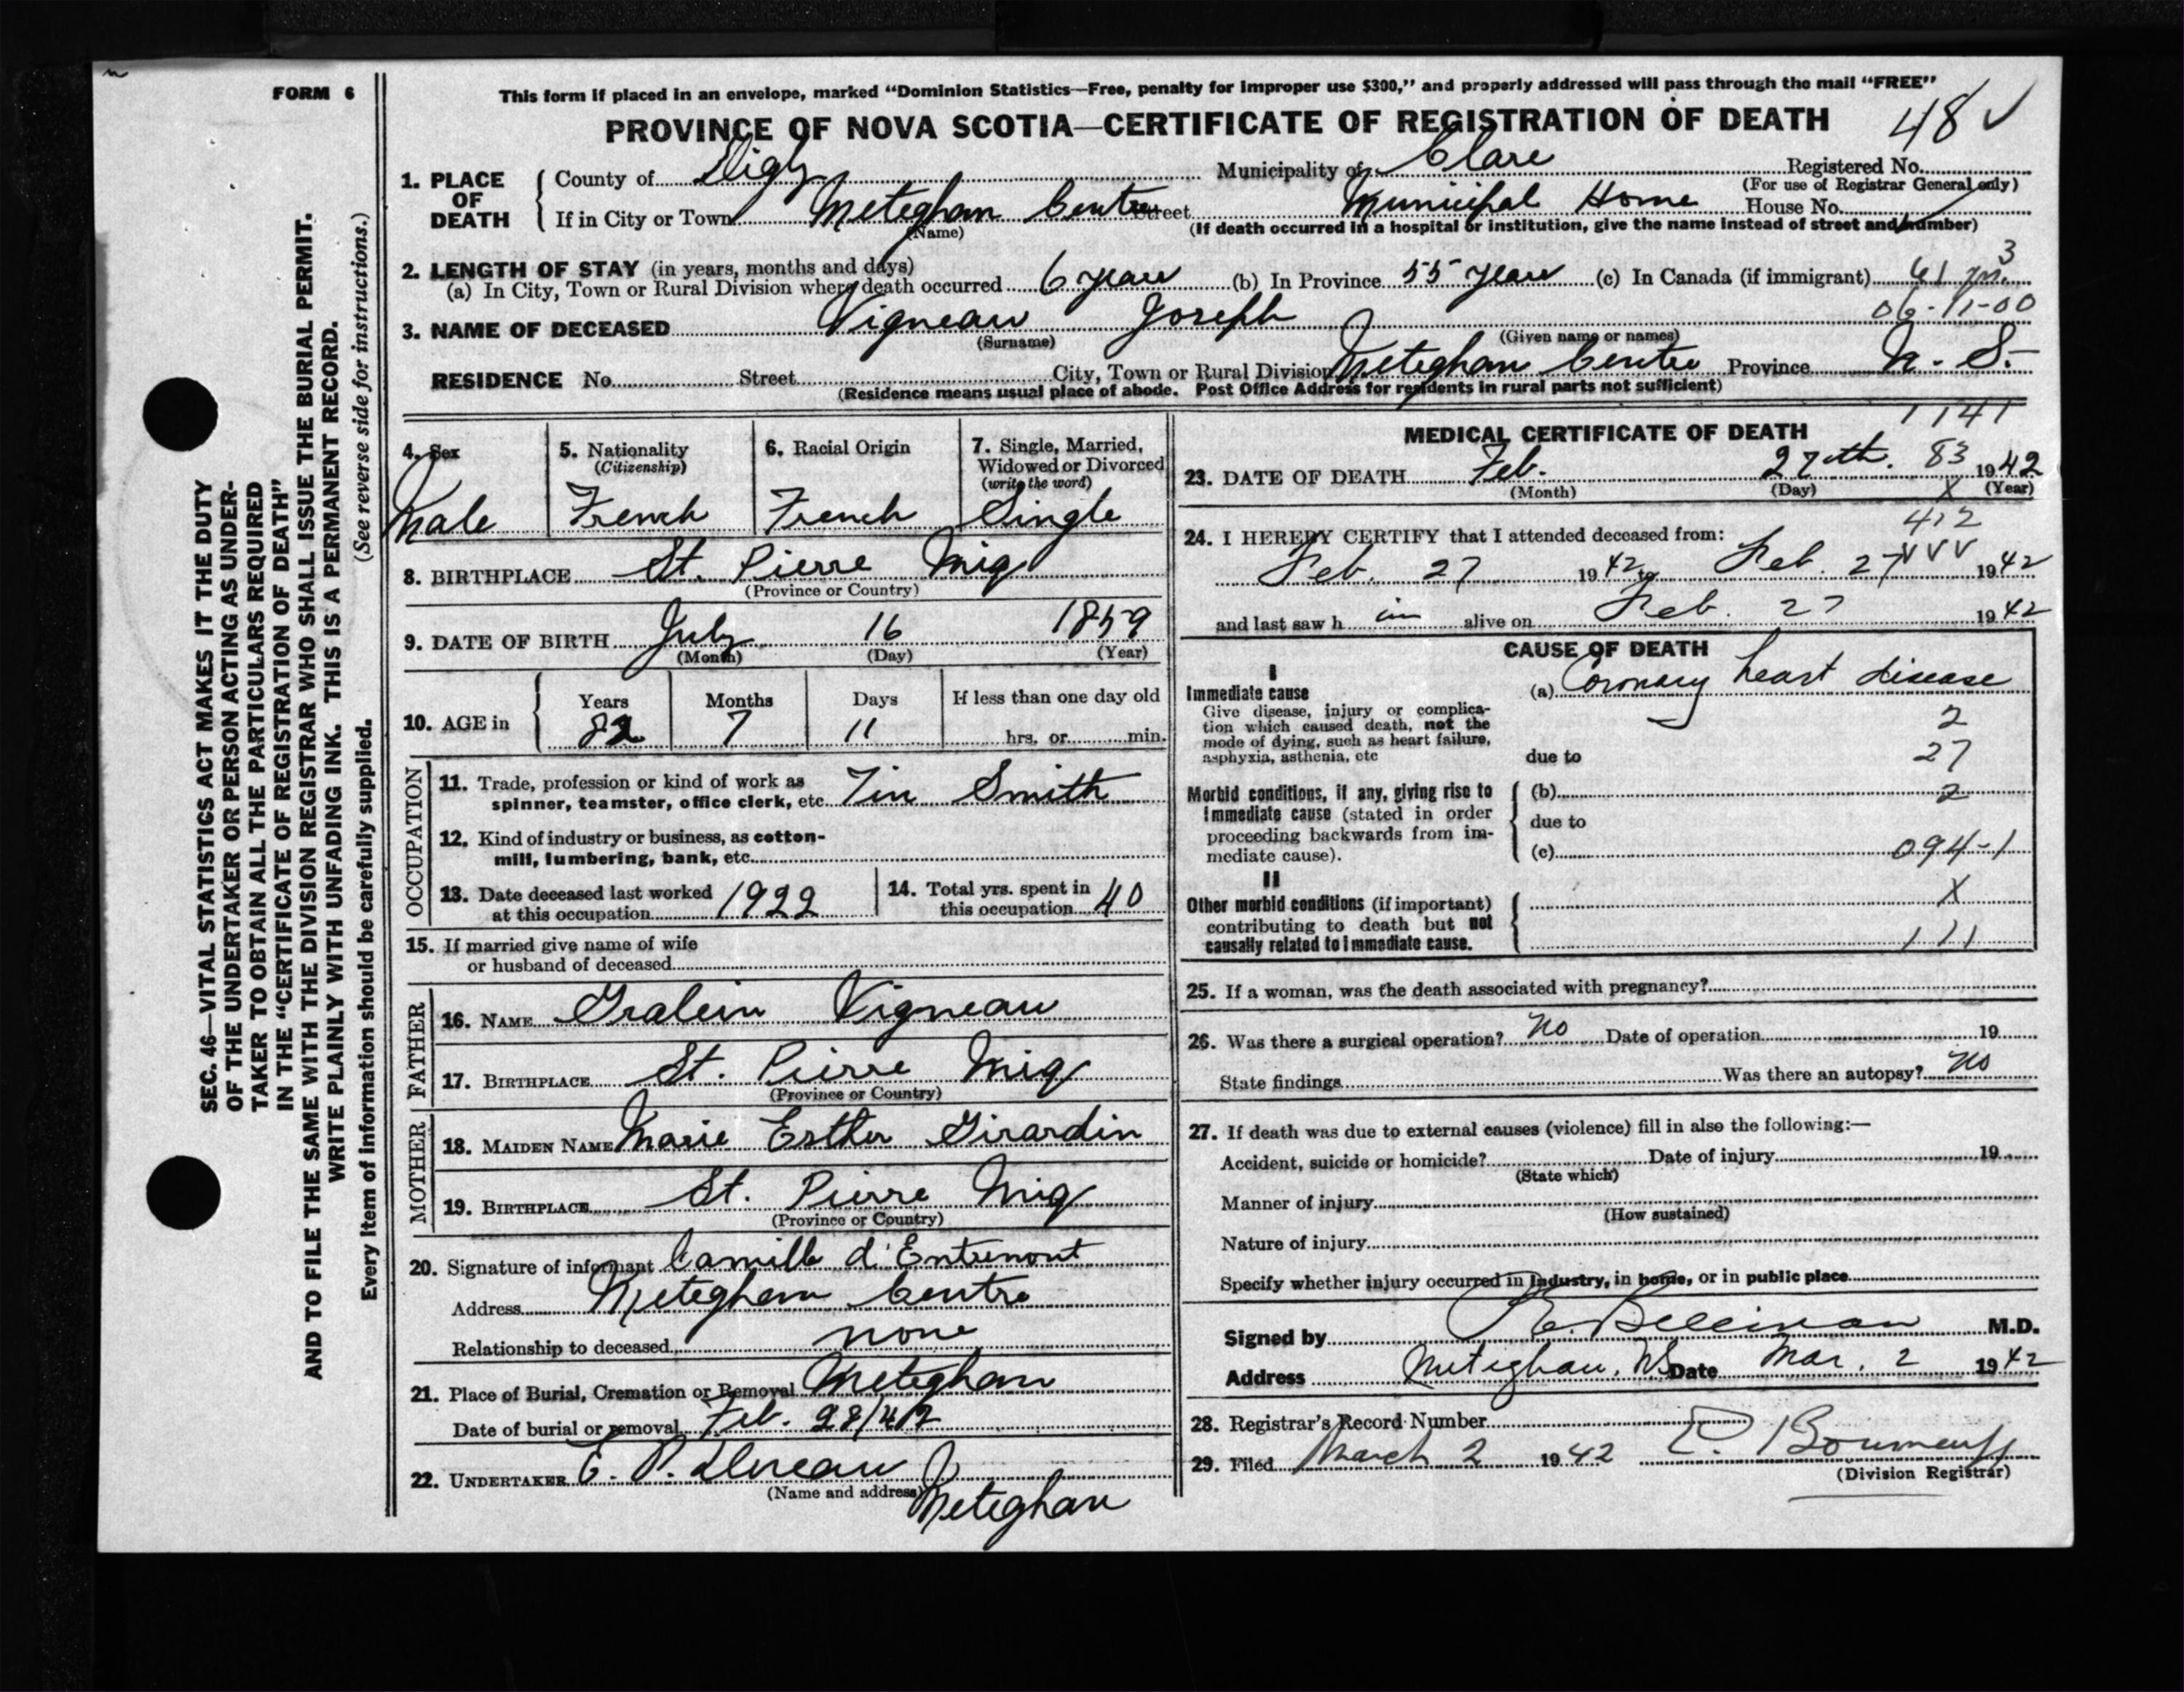 FORM 6
This form if placed in an envelope, marked “Dominion Statistics—Free, penalty for improper use $300,” and properly addressed will pass through the mail “FREE”
PROVINCE OF NOVA SCOTIA—CERTIFICATE OF REGISTRATION OF DEATH
48 ✓
1. PLACE OF DEATH
County of Digby Municipality of Clare Registered No.
(For use of Registrar General only)
If in City or Town Meteghan Centre Street Municipal Home House No.
(Name) (If death occurred in a hospital or institution, give the name instead of street and number)
2. LENGTH OF STAY (in years, months and days)
(a) In City, Town or Rural Division where death occurred 6 years (b) In Province 55 years (c) In Canada (if immigrant) 61 3
06-11-00
3. NAME OF DECEASED Vigneau Joseph
(Surname) (Given name or names)
RESIDENCE No. Street City, Town or Rural Division Meteghan Centre Province N. S.
(Residence means usual place of abode. Post Office Address for residents in rural parts not sufficient)
4. Sex
Male
5. Nationality
(Citizenship)
French
6. Racial Origin
French
7. Single, Married,
Widowed or Divorced
(write the word)
Single
8. BIRTHPLACE St. Pierre Miq
(Province or Country)
9. DATE OF BIRTH July 16 1859
(Month) (Day) (Year)
10. AGE in
Years Months Days If less than one day old
82 7 11 hrs. or min.
OCCUPATION
11. Trade, profession or kind of work as
spinner, teamster, office clerk, etc. Tin Smith
12. Kind of industry or business, as cotton-
mill, lumbering, bank, etc.
13. Date deceased last worked
at this occupation 1922
14. Total yrs. spent in
this occupation 40
15. If married give name of wife
or husband of deceased
FATHER
16. NAME Vigneau
17. BIRTHPLACE St. Pierre Miq
(Province or Country)
MOTHER
18. MAIDEN NAME Marie Esther Girardin
19. BIRTHPLACE St. Pierre Miq
(Province or Country)
20. Signature of informant Camille d'Entremont
Address Meteghan Centre
Relationship to deceased none
21. Place of Burial, Cremation or Removal Meteghan
Date of burial or removal Feb. 28/42
22. UNDERTAKER E. P.
(Name and address)
Meteghan
1141
MEDICAL CERTIFICATE OF DEATH
23. DATE OF DEATH Feb. 27th. 83 1942
(Month) (Day) X (Year)
412
24. I HEREBY CERTIFY that I attended deceased from:
Feb. 27 1942 to Feb. 27 VVV 1942
and last saw h im alive on Feb. 27 1942
CAUSE OF DEATH
I
Immediate cause
Give disease, injury or complica-
tion which caused death, not the
mode of dying, such as heart failure,
asphyxia, asthenia, etc
(a) Coronary heart disease
2
due to 27
Morbid conditions, if any, giving rise to
immediate cause (stated in order
proceeding backwards from im-
mediate cause).
(b) 2
due to
(c) 094-1
II
Other morbid conditions (if important)
contributing to death but not
causally related to immediate cause.
X
111
25. If a woman, was the death associated with pregnancy?
26. Was there a surgical operation? no Date of operation 19
State findings Was there an autopsy? no
27. If death was due to external causes (violence) fill in also the following:—
Accident, suicide or homicide? Date of injury 19
(State which)
Manner of injury
(How sustained)
Nature of injury
Specify whether injury occurred in industry, in home, or in public place
Signed by Belliveau M.D.
Address Meteghan, NS Date Mar. 2 1942
28. Registrar's Record Number
29. Filed March 2 1942
(Division Registrar)
SEC. 46—VITAL STATISTICS ACT MAKES IT THE DUTY
OF THE UNDERTAKER OR PERSON ACTING AS UNDER-
TAKER TO OBTAIN ALL THE PARTICULARS REQUIRED
IN THE “CERTIFICATE OF REGISTRATION OF DEATH”
AND TO FILE THE SAME WITH THE DIVISION REGISTRAR WHO SHALL ISSUE THE BURIAL PERMIT.
WRITE PLAINLY WITH UNFADING INK. THIS IS A PERMANENT RECORD.
Every item of information should be carefully supplied. (See reverse side for instructions.)